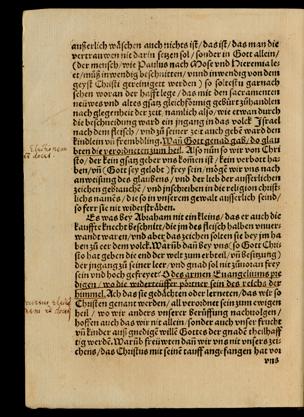 außerlich wäschen auch nichts ist / das ist / das man die
vertrauwen nit darin setzen sol / sonder in Gott allein /
(der mensch / wie Paulus nach Mose vnd Hieremia le-
et / muß inwendig beschnitten / vnnd inwendig von dem
geyst Christi gereiniget werden) so soltestu garnach
sehen woran der hafft lege / das mit den sacramenten
neuwes vnd altes gsatz gleichförmig gebürt zůhandlen
nach glegenheit der zeit / namlich also / wie etwan durch
die beschneidung ward ein jngang in das volck Israel
nach dem fleisch / vnd zů seiner zeit auch gebe ward den
kindlein vn frembdling. Wañ Gott genad gab / dz glau-
ten die verordneten zum heil. Also nun so wir von Chri-
sto / der kein gsatzgeber vns kom̃en ist / kein verbott ha-
ben / vñ (Gott sey globt) frey sein / mögē wir vns nach
anweisung des glaubens / vnd der leer der ausserlichen
zeichen gebrauchē / vnd jnschreiben in die religion christ-
lichs namēs / die so in vnserem gewalt ausserlich seind /
so ferr sie nit widersträben.
Es was bey Abraham nit ein kleins / das er auch die
kaufften knecht beschnitt / die jm des fleisch halben vnuer-
wandt waren / vnd aber das zeichen solten sie bey jm ha-
ben zů eer dem volck. Warüb dañ bey vns / so Gott Chri-
sto hat geben die end der welt zum erbteil / vñ besitzung)
der jngang zů seiner leer vnd gnad sol nit zůuoran frey
sein vnd hoch gefreyet? O des armen Euangeliums pre-
digen / wo die widerteüffer pörtner sein des reichs der
himmel. Ach das sie gedächten oder lerneten / das wir so
Christen genant worden / all verordnet sein zum ewigen
heil / wo wir anders vnserer berüffung nachuolgen /
hoffen auch das wir nit allein / sonder auch vnser frucht
vñ kinder auß gnedigē willē Gottes der gnadē theilhaff
tig werdē. Warüb freüwen dañ wir vns nit vnsers zei-
chens / das Christus mit seine tauff angefangen hat vor
vns